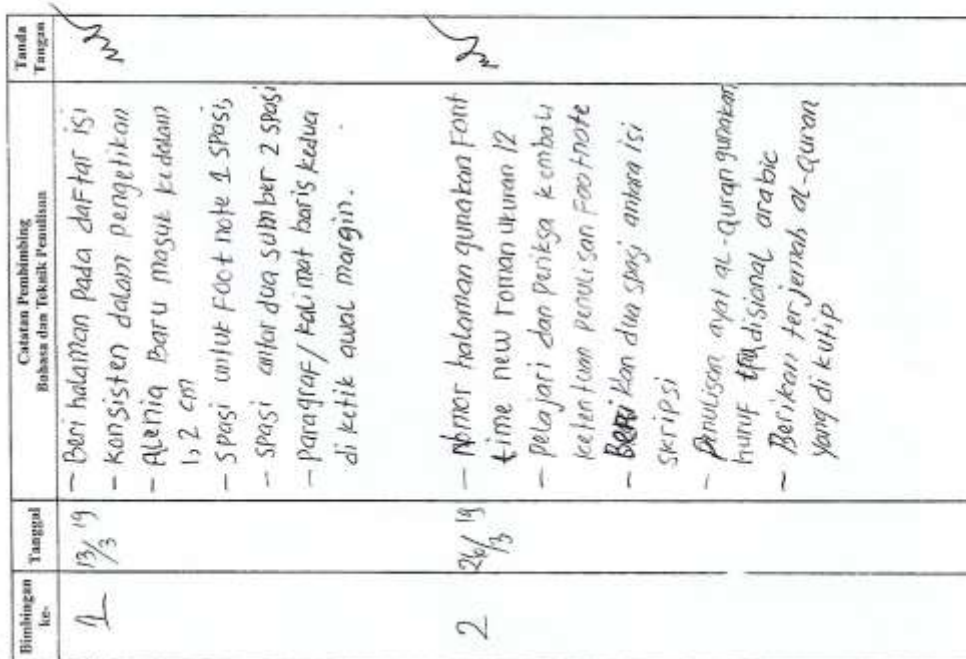 Bimbingan ke-
Tanggal
Catatan Pembimbing
Bahasa dan Teknik Penulisan
Tanda Tangan
1
13/3 19
- Beri halaman pada daftar isi
- Konsisten dalam pengetikan
- Alenia Baru masuk kedalam
1,2 cm
- Spasi untuk Footnote 1 spasi,
- Spasi antar dua sumber 2 spasi
- Paragraf/kalimat baris kedua
di ketik awal margin.
2
26/3 19
- Nomor halaman gunakan Font
time new roman ukuran 12
- Pelajari dan periksa kembali
ketentuan penulisan Footnote
- Berikan dua spasi antara isi
skripsi
- Penulisan ayat al-quran gunakan
huruf tradisional arabic
- Berikan terjemah al-quran
yang di kutip